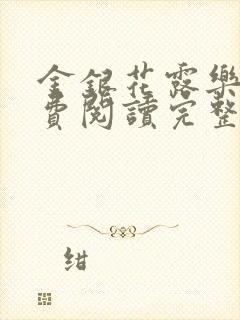 金銀花露樂
費閱讀完整
紺